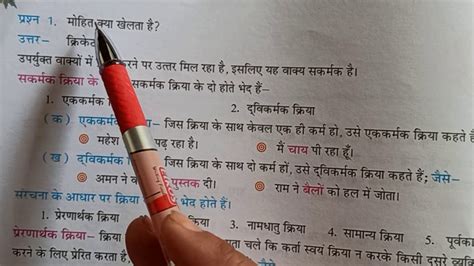 प्रश्न 1. मोहित क्या खेलता है?
उत्तर– क्रिकेट
उपर्युक्त वाक्यों में करने पर उत्तर मिल रहा है, इसलिए यह वाक्य सकर्मक है।
सकर्मक क्रिया के सकर्मक क्रिया के दो होते भेद हैं–
1. एककर्मक 2. द्विकर्मक क्रिया
(क) एककर्मक – जिस क्रिया के साथ केवल एक ही कर्म हो, उसे एककर्मक क्रिया कहते हैं
महेश पढ़ रहा है। मैं चाय पी रहा हूँ।
(ख) द्विकर्मक – जिस क्रिया के साथ दो कर्म हों, उसे द्विकर्मक क्रिया कहते हैं; जैसे–
अमन ने पुस्तक दी। राम ने बैलों को हल में जोता।
संरचना के आधार पर क्रिया भेद होते हैं।
1. प्रेरणार्थक क्रिया 3. नामधातु क्रिया 4. सामान्य क्रिया 5. पूर्वका
प्रेरणार्थक क्रिया– क्रिया चले कि कर्ता स्वयं क्रिया न करके किसी दूसरे व्यक्ति
करने के लिए प्रेरित करता है,